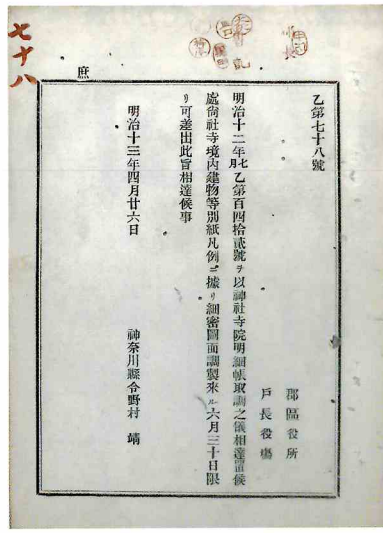 七十八
庶
乙第七十八號
郡區役所
戸長役場
明治十二年七月乙第百四拾貳號ヲ以神社寺院明細帳取調之儀相達置候
處尙社寺境內建物等別紙凡例ニ據リ細密圖面調製來ル六月三十日限
リ可差出此旨相達候事
明治十三年四月廿六日
神奈川縣令野村 靖